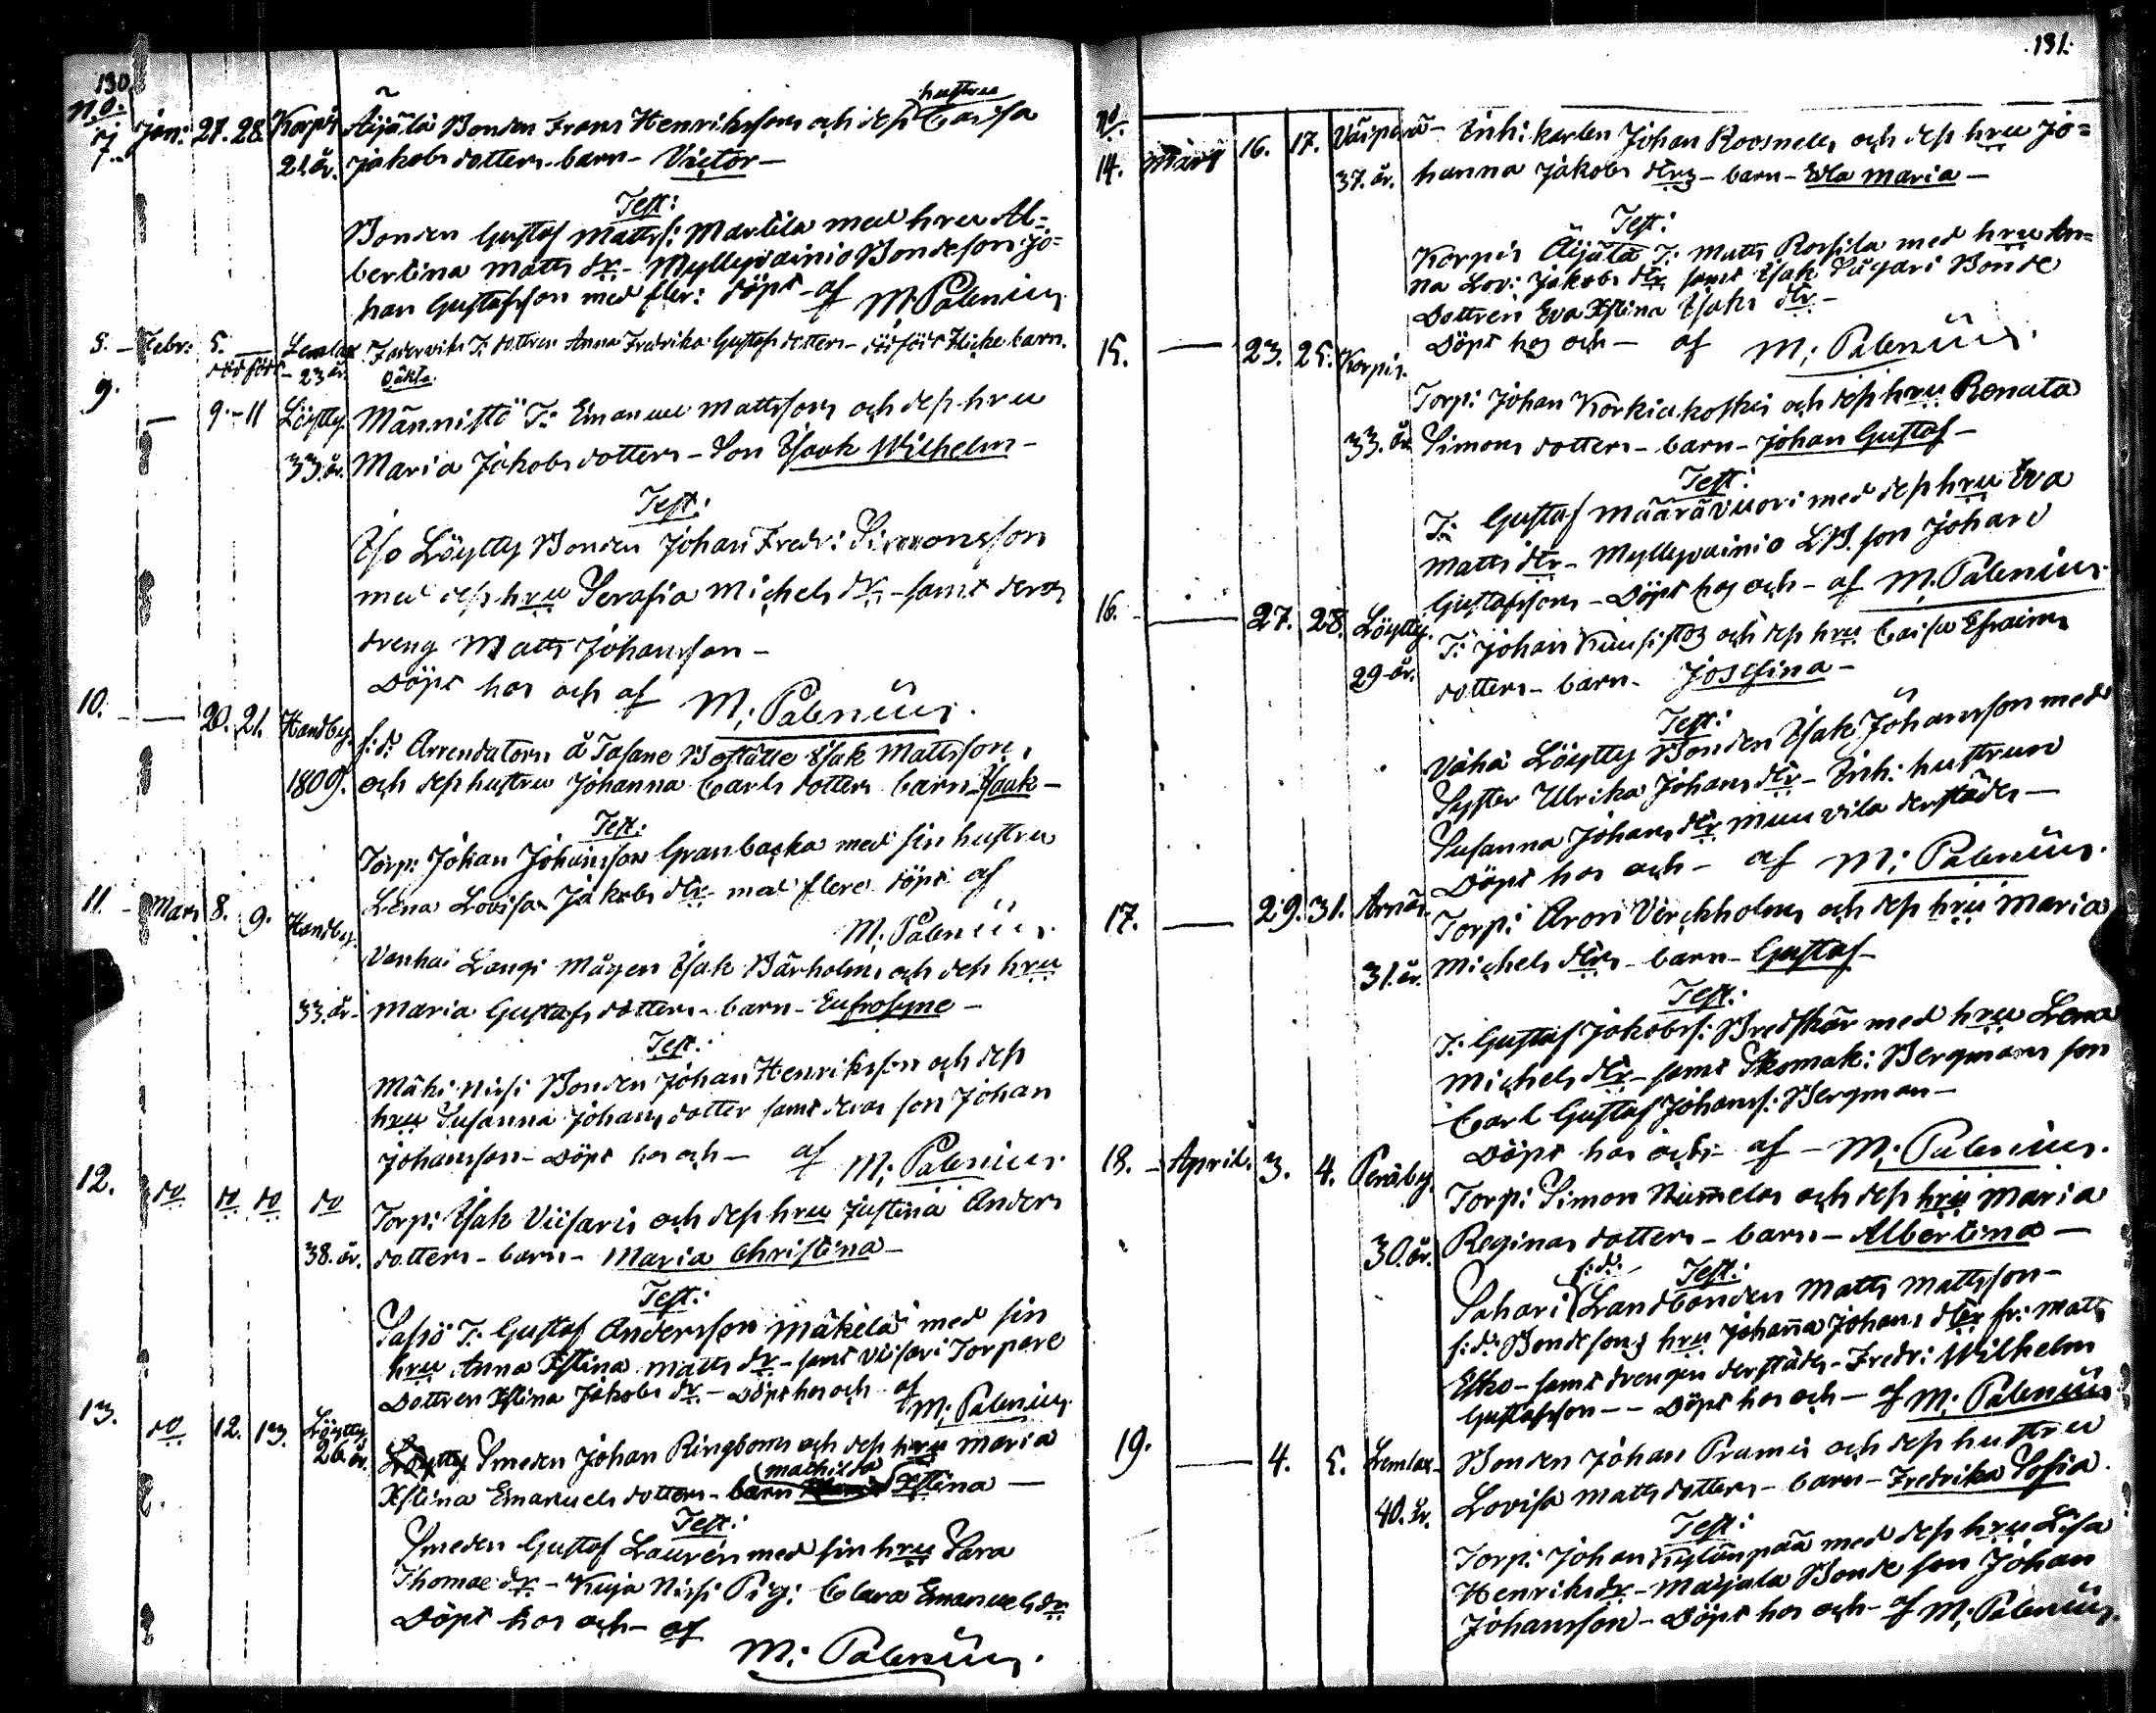 130.
N.o.
7. Jan: 27. 28. Korpis Äijälä Bonden Frans Henriksson och dess hustru Caisa
21 år. Jakobs dotters barn - Victor -
Test:
Bonden Gustaf Mattss: Marttila med hru Al=
bertina Matts dr. - Myllyvainio Bondeson Jo=
han Gustafsson med fler: döpt - af M. Palenius
8. - Febr: 5. Lemlax T: dottren Anna Fredrika Gustafs dotters - dödfödt Flicke barn.
dödfödt - 23 år. oäkta
9. - 9 - 11 Löytty Männistö T: Emanuel Mattsson och dess hru
33. år. Maria Jakobs dotters - Son Isaak Wilhelm -
Test:
Iso Löytty Bonden Johan Fredr: Simonsson
med dess hru Serafia Michels dr. - samt deras
dreng Matts Johansson -
Döpt hos och af M. Palenius.
10. - 20. 21. Handby f: d: Arrendatorn å Tasane Boställe Isak Mattsson,
1809. och dess hustru Johanna Carls dotters barn Isaak -
Test:
Torp: Johan Johansson Granbacka med sin hustru
Lena Lovisa Jakobs dr - med flere döpt af
M. Palenius.
11. - Mars 8. 9. Handby. Vanhai Langi Mågen Isak Bärholm och dess hru
33. år. Maria Gustafs dotters - barn - Eufrosyne -
Test:
Mäki Nissi Bonden Johan Henriksson och dess
hru Susanna Johans dotter samt deras son Johan
Johansson - Döpt hos och - af M. Palenius.
12. do do do do Torp: Isak Viisari och dess hru Justina Anders
38. år. dotters - barn - Maria Christina -
Test:
T: Gustaf Andersson Mäkelä med sin
hru Anna Xstina Matts dr - samt Viisari Torpare
Dottren Xstina Jakobs dr. - Döpt hos och af M. Palenius.
13. do 12. 13. Löytty Löytty Smeden Johan Ringbom och dess hru Maria
26 år. Xstina Emanuels dotters - barn Mathilda Xstina -
Test:
Smeden Gustaf Laurén med sin hru Sara
Thomae dr. - Kuja Nissi Pig: Clara Emanuels dr.
Döpt hos och - af
M. Palenius.
131.
No.
14. Mars 16. 17. Inh: karlen Johan Roosnell och dess hru Jo=
37. år. hanna Jakobs dtrs - barn - Edla Maria -
Test:
Korpis Äijälä T: Matts Rossila med hru An=
na Lov: Jakobs dtr samt Isak Bonde
Dottren Eva Xstina Isaks dtr -
Döpt hos och - af M. Palenius.
15. - 23. 25. Korpis. Torp: Johan Korkiakoski och dess hru Renata
33. år. Simons dotters - barn - Johan Gustaf -
Test:
T: Gustaf Määrävuori med dess hru Eva
Matts dtr - Myllyvainio son Johan
Gustafsson - Döpt hos och - af M. Palenius.
16. - 27. 28. Löytty. T: Johan och dess hru Caisa Efraims
29 år. dotters - barn - Josefina -
Test:
Vähä Löytty Bonden Isak Johansson med
Syster Ulrika Johans dtr - Inh: hustrun
Susanna Johans dtr derstädes -
Döpt hos och - af M. Palenius.
17. - 29. 31. Arnäs Torp: Aron Virckholm och dess hru Maria
31. år. Michels dtrs - barn - Gustaf -
Test:
T: Gustaf Jakobss: Bredskär med hru Lena
Michels dtr - samt Skomak: Bergmans son
Carl Gustaf Johanss: Bergman -
Döpt hos och - af - M. Palenius.
18. - April. 3. 4. Peräby. Torp: Simon Nummelas och dess hru Maria
30. år. Reginas dotters - barn - Albertina -
Test:
Sahari f: d: Landbonden Matts Mattsson -
f: d: Bondesons hru Johanna Johans dtr fr: Matts
Esko - samt drengen derstädes - Fredr: Wilhelm
Gustafsson - - Döpt hos och - af M. Palenius
19. - 4. 5. Lemlax - Bonden Johan Prami och dess hustru
40. år. Lovisa Matts dotters - barn - Fredrika Sofia.
Test:
Torp: Johan Kylänpää med dess hru Lisa
Henriks dr. - Maijala Bonde son Johan
Johansson - Döpt hos och - af M. Palenius.